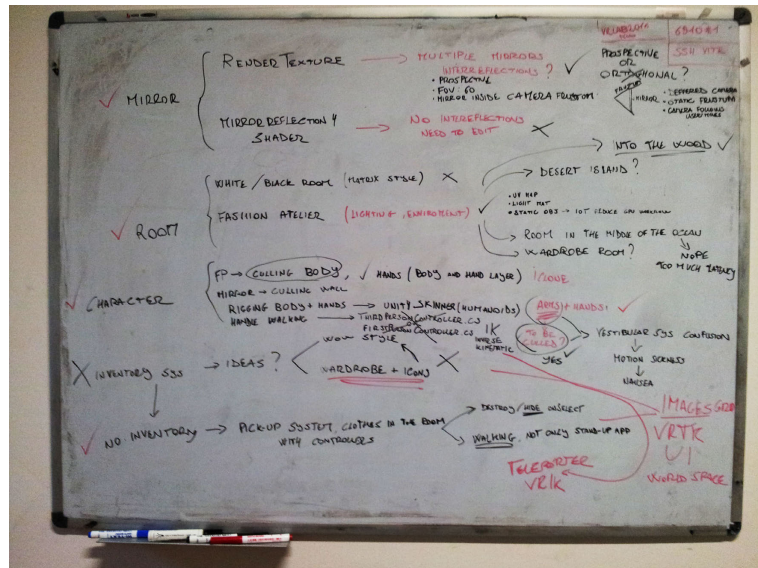 RENDER TEXTURE
MULTIPLE MIRRORS
INTERREFLECTIONS?
• PROSPECTIVE
• FOV: 60
• MIRROR INSIDE CAMERA FRUSTUM
PROSPECTIVE
OR
ORTOGHONAL?
MIRROR
• DEFFERED CAMERA
• STATIC FRUSTUM
• CAMERA FOLLOWING
MIRROR
MIRROR REFLECTION 4
SHADER
NO INTREFLECTIONS
NEED TO EDIT
INTO THE WORLD
WHITE / BLACK ROOM (MATRIX STYLE)
DESERT ISLAND?
ROOM
FASHION ATELIER (LIGHTING, ENVIROMENT)
• UV MAP
• LIGHT MAT
• STATIC OBJ
ROOM IN THE MIDDLE OF THE OCEAN
WARDROBE ROOM?
NOPE
TOO MUCH LATENCY
CHARACTER
FP → CULLING BODY, HANDS (BODY AND HAND LAYER)
ICLONE
MIRROR → CULLING WALL
RIGGING BODY + HANDS → UNITY SKINNER (HUMANOIDS)
ARMS + HANDS!
HANDLE WALKING → THIRDPERSONCONTROLLER.CS
OR
FIRSTPERSONCONTROLLER.CS
IK
INVERSE
KINEMATIC
TO BE
CULLED?
YES
VESTIBULAR SYS CONFUSION
MOTION SICKNESS
NAUSEA
INVENTORY SYS → IDEAS?
WOW
STYLE
WARDROBE + ICONS
NO INVENTORY → PICK-UP SYSTEM, CLOTHES IN THE ROOM
WITH CONTROLLERS
DESTROY/HIDE ONSELECT
WALKING, NOT ONLY STAND-UP APP
VRTK
UI
WORLD SPACE
TELEPORTER
VRTK